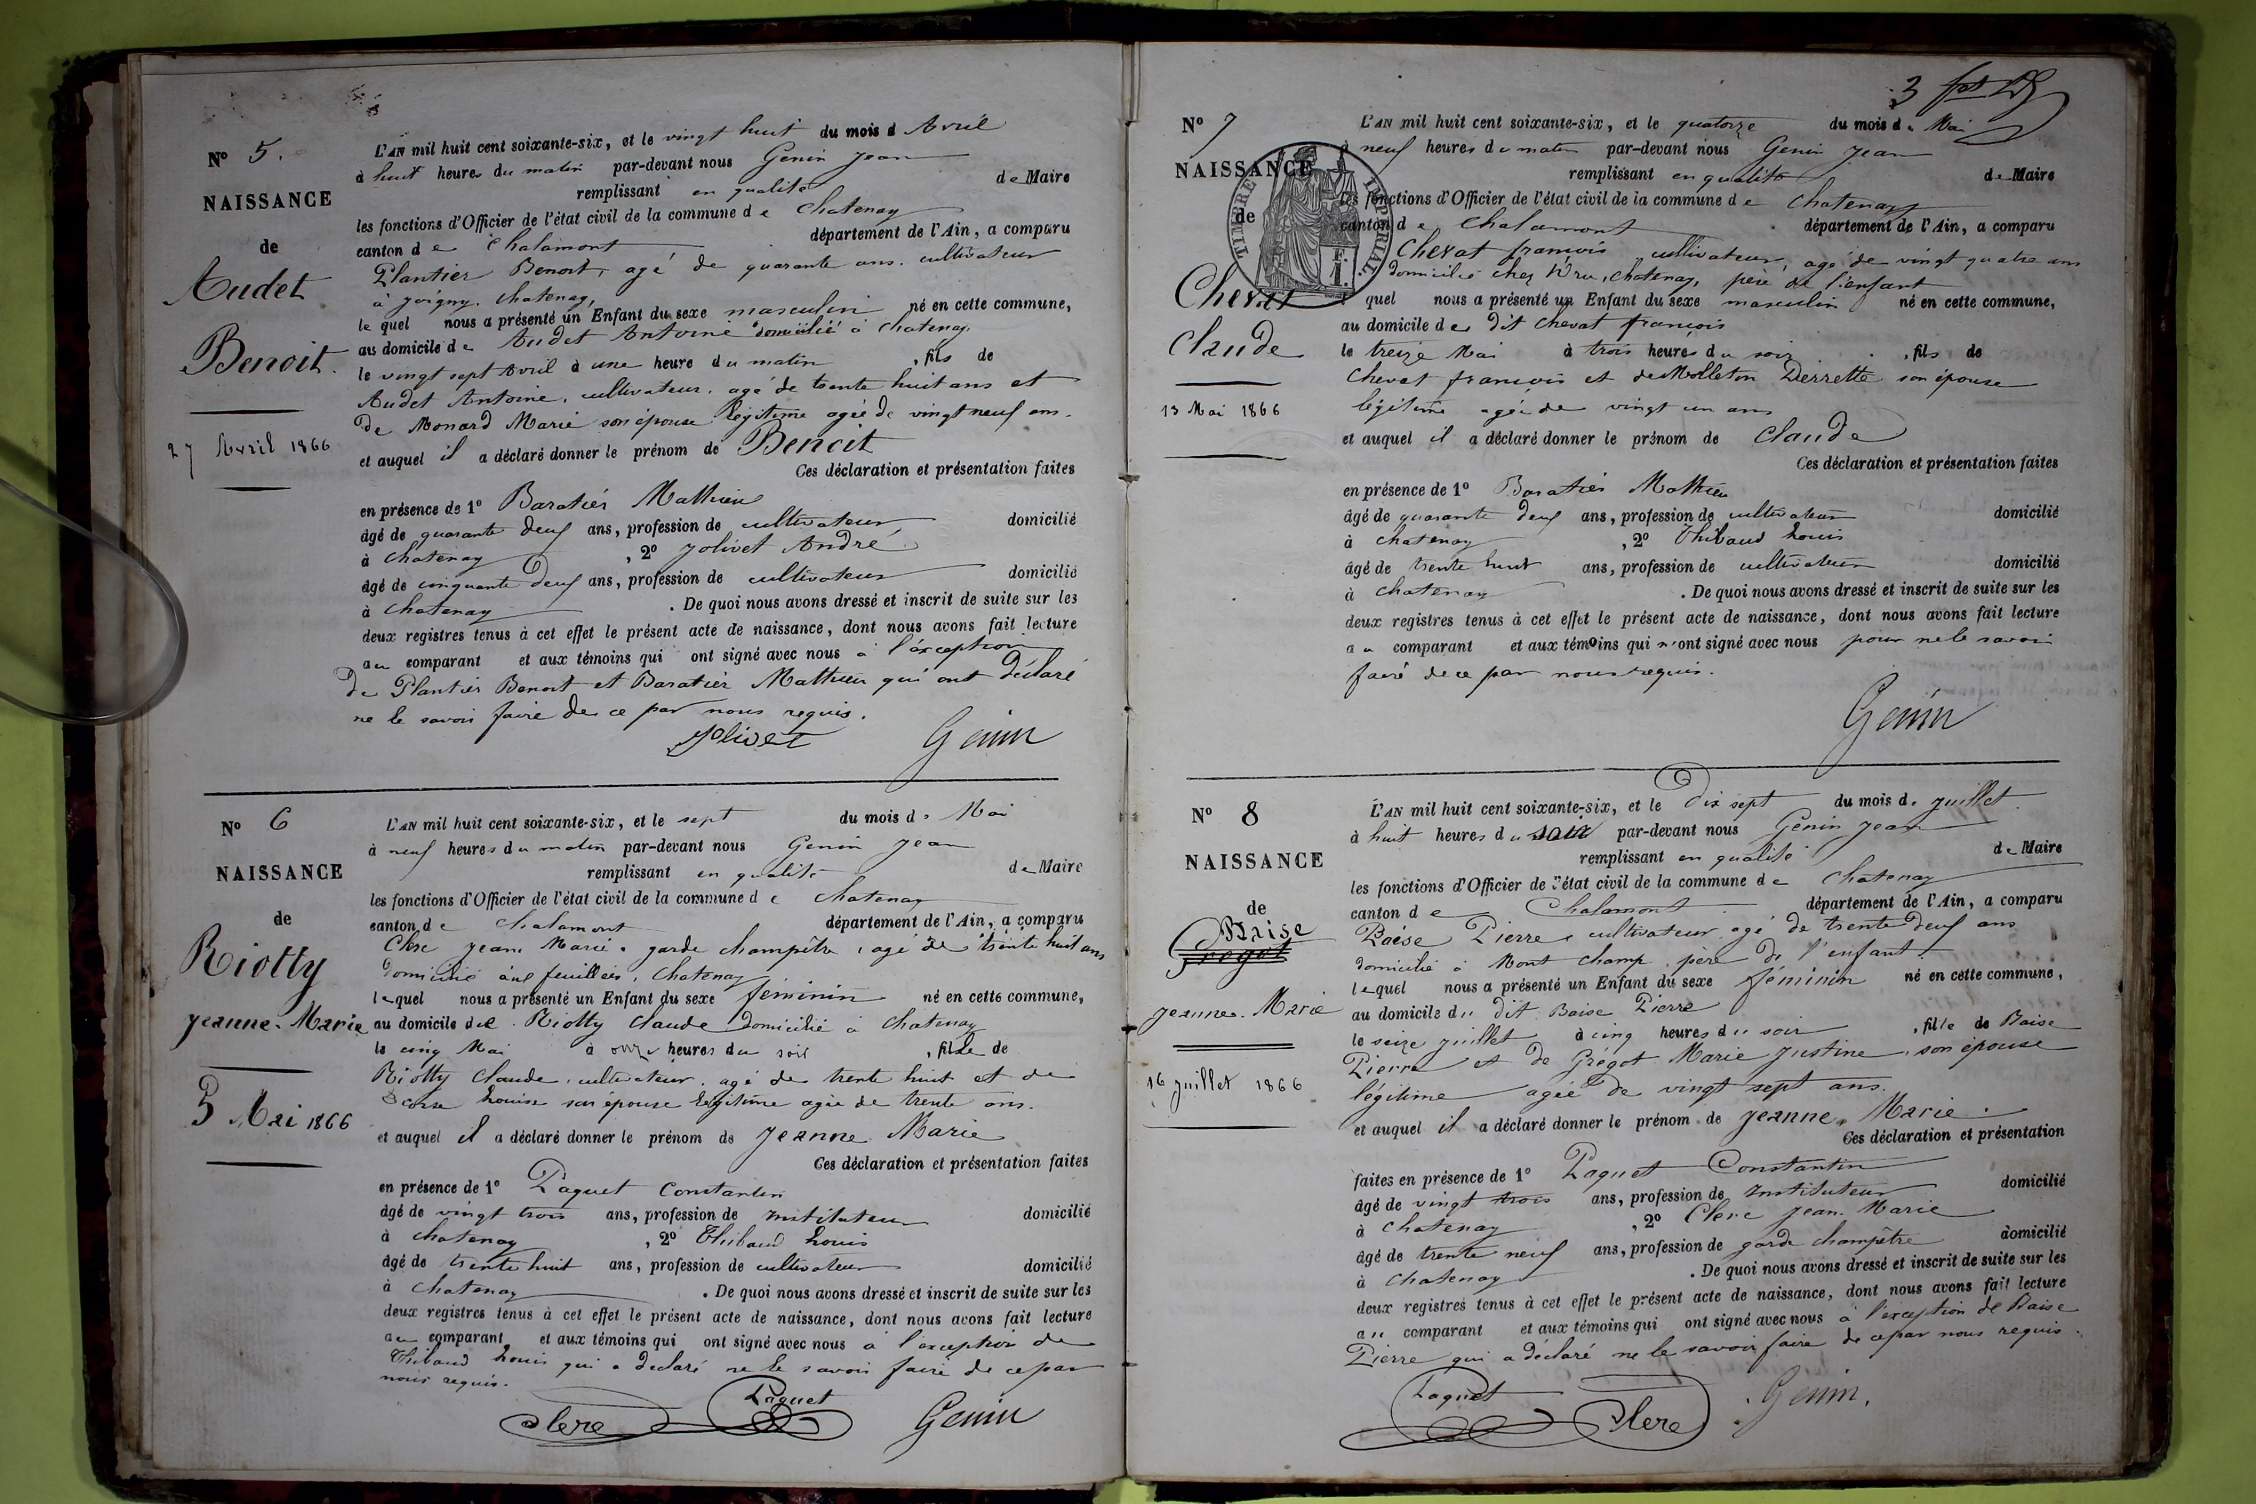 N° 5.
NAISSANCE
de
Audet
Benoit.
27 Avril 1866
L'AN mil huit cent soixante-six, et le vingt huit du mois d Avril
à huit heures du matin par-devant nous Genin Jean
remplissant en qualité de Maire
les fonctions d'Officier de l'état civil de la commune de Chatenay
canton de Chalamont département de l'Ain, a comparu
Plantier Benoit, agé de quarante ans. cultivateur
à Joigny. Chatenay,
lequel nous a présenté un Enfant du sexe masculin né en cette commune,
au domicile de Audet Antoine domicilié à Chatenay
le vingt sept Avril à une heure du matin, fils de
Audet Antoine, cultivateur, agé de trente huit ans et
de Monard Marie son épouse légitime agée de vingt neuf ans.
et auquel il a déclaré donner le prénom de Benoit
Ces déclaration et présentation faites
en présence de 1° Baratier Mathieu
âgé de quarante deux ans, profession de cultivateur domicilié
à Chatenay, 2° Jolivet André
âgé de cinquante deux ans, profession de cultivateur domicilié
à Chatenay. De quoi nous avons dressé et inscrit de suite sur les
deux registres tenus à cet effet le présent acte de naissance, dont nous avons fait lecture
au comparant et aux témoins qui ont signé avec nous à l'exception
de Plantier Benoit et Baratier Mathieu qui ont déclaré
ne le savoir faire de ce par nous requis.
Jolivet Genin
N° 6
NAISSANCE
de
Riotty
Jeanne-Marie
5 Mai 1866
L'AN mil huit cent soixante-six, et le sept du mois de Mai
à neuf heures du matin par-devant nous Genin Jean
remplissant en qualité de Maire
les fonctions d'Officier de l'état civil de la commune de Chatenay
canton de Chalamont département de l'Ain, a comparu
Clerc Jean Marie. garde champêtre, agé de trente huit ans
domicilié aux feuillées, Chatenay
lequel nous a présenté un Enfant du sexe féminin né en cette commune,
au domicile de Riotty Claude domicilié à Chatenay
le cinq Mai à onze heures du soir, fille de
Riotty Claude, cultivateur. agé de trente huit et de
Louise son épouse légitime agée de trente ans.
et auquel il a déclaré donner le prénom de Jeanne Marie
Ces déclaration et présentation faites
en présence de 1° Paquet Constantin
âgé de vingt trois ans, profession de Instituteur domicilié
à Chatenay, 2° Thibaud Louis
âgé de trente huit ans, profession de cultivateur domicilié
à Chatenay. De quoi nous avons dressé et inscrit de suite sur les
deux registres tenus à cet effet le présent acte de naissance, dont nous avons fait lecture
au comparant et aux témoins qui ont signé avec nous à l'exception de
Thibaud Louis qui a déclaré ne le savoir faire de ce par
nous requis.
Clerc Paquet Genin
3
N° 7
NAISSANCE
de
Chevat
Claude
13 Mai 1866
TIMBRE IMPERIAL
F.
1.
L'AN mil huit cent soixante-six, et le quatorze du mois de Mai
à neuf heures du matin par-devant nous Genin Jean
remplissant en qualité de Maire
les fonctions d'Officier de l'état civil de la commune de Chatenay
canton de Chalamont département de l'Ain, a comparu
Chevat françois cultivateur, agé de vingt quatre ans
domicilié chez Chatenay, père de l'enfant
lequel nous a présenté un Enfant du sexe masculin né en cette commune,
au domicile de dit Chevat françois
le treize Mai à trois heures du soir, fils de
Chevat françois et de Molleton Perrette son épouse
légitime agée de vingt un ans
et auquel il a déclaré donner le prénom de Claude
Ces déclaration et présentation faites
en présence de 1° Baratier Mathieu
âgé de quarante deux ans, profession de cultivateur domicilié
à Chatenay, 2° Thibaud Louis
âgé de trente huit ans, profession de cultivateur domicilié
à Chatenay. De quoi nous avons dressé et inscrit de suite sur les
deux registres tenus à cet effet le présent acte de naissance, dont nous avons fait lecture
au comparant et aux témoins qui n'ont signé avec nous pour ne le savoir
faire de ce par nous requis.
Genin
N° 8
NAISSANCE
de
Baise
Gregot
Jeanne-Marie
16 Juillet 1866
L'AN mil huit cent soixante-six, et le Dix sept du mois de Juillet
à huit heures du soir par-devant nous Genin Jean
remplissant en qualité de Maire
les fonctions d'Officier de l'état civil de la commune de Chatenay
canton de Chalamont département de l'Ain, a comparu
Baése Pierre, cultivateur agé de trente deux ans
domicilié à Mont champ, père de l'enfant.
lequel nous a présenté un Enfant du sexe féminin né en cette commune,
au domicile du dit Baise Pierre
le seize Juillet à cinq heures du soir, fille de Baise
Pierre et de Grégot Marie Justine, son épouse
légitime agée de vingt sept ans.
et auquel il a déclaré donner le prénom de Jeanne, Marie.
Ces déclaration et présentation
faites en présence de 1° Paquet Constantin
âgé de vingt trois ans, profession de Instituteur domicilié
à Chatenay, 2° Clerc Jean-Marie
âgé de trente neuf ans, profession de garde champêtre domicilié
à Chatenay. De quoi nous avons dressé et inscrit de suite sur les
deux registres tenus à cet effet le présent acte de naissance, dont nous avons fait lecture
au comparant et aux témoins qui ont signé avec nous à l'exception de Baise
Pierre qui a déclaré ne le savoir faire de ce par nous requis.
Paquet Clerc Genin.